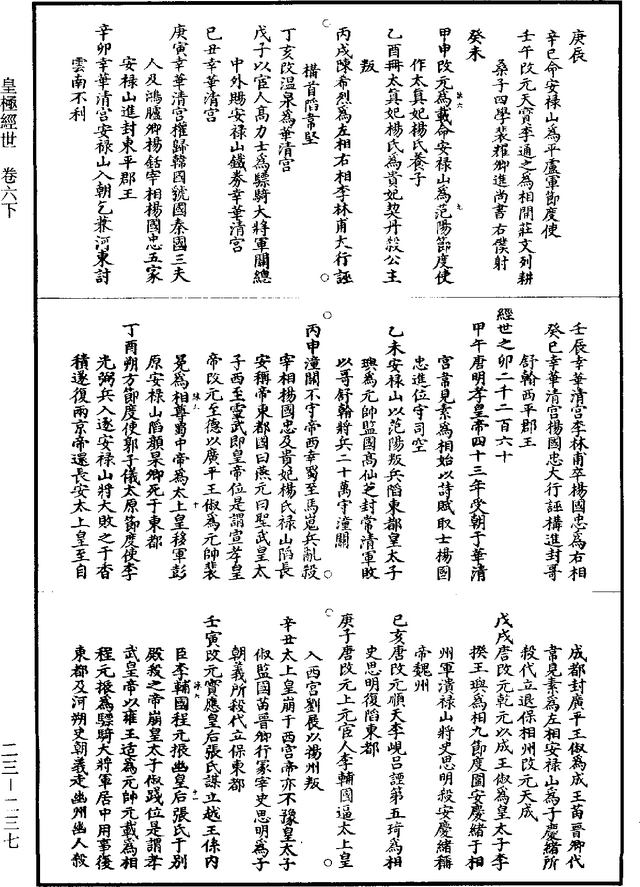 皇極經世　卷六下
庚辰
辛巳命安禄山為平盧軍節度使
壬午改元天寶李適之為相開莊文列耕
桑子四學裴耀卿進尚書右僕射
癸未
甲申改元為載命安禄山為范陽節度使
作太真妃楊氏養子
乙酉冊太真妃楊氏為貴妃契丹殺公主
叛
丙戌陳希烈為左相右相李林甫大行誣
構首陷韋堅
丁亥改溫泉為華清宮
戊子以宦人高力士為驃騎大將軍關總
中外賜安禄山鐵券幸華清宮
己丑幸華清宮
庚寅幸華清宮權歸韓國虢國秦國三夫
人及鴻臚卿楊銛宰相楊國忠五家
安禄山進封東平郡王
辛卯幸華清宮安禄山入朝乞兼河東討
雲南不利
壬辰幸華清宮李林甫卒楊國忠為右相
癸巳幸華清宮楊國忠大行誣構進封哥
舒翰西平郡王
經世之卯二千二百六十
甲午唐明孝皇帝四十三年受朝于華清
宮韋見素為相始以詩賦取士楊國
忠進位守司空
乙未安禄山以范陽叛兵陷東都皇太子
璵為元帥監國高仙芝封常清軍敗
以哥舒翰將兵二十萬守潼關
丙申潼關不守帝西幸蜀至馬嵬兵亂殺
宰相楊國忠及貴妃楊氏禄山陷長
安稱帝東都國曰燕元曰聖武皇太
子西至靈武即皇帝位是謂宣孝皇
帝改元至德以廣平王俶為元帥裴
冕為相尊蜀中帝為太上皇移軍彭
原安禄山陷顏杲卿死于東都
丁酉朔方節度使郭子儀太原節度使李
光弼兵入逐安禄山將大敗之于香
積遂復兩京帝還長安太上皇至自
成都封廣平王俶為成王苗晉卿代
韋見素為左相安禄山為子慶緒所
殺代立退保相州改元天成
戊戌唐改元乾元以成王俶為皇太子李
揆王璵為相九節度圍安慶緒于相
州軍潰禄山將史思明殺安慶緒稱
帝魏州
己亥唐改元順天李峴呂諲第五琦為相
史思明復陷東都
庚子唐改元上元宦人李輔國逼太上皇
入西宮劉展以揚州叛
辛丑太上皇崩于西宮帝亦不豫皇太子
俶監國苗晉卿行冢宰史思明為子
朝義所殺代立保東都
壬寅改元寶應皇后張氏謀立越王係內
臣李輔國程元振幽皇后張氏于別
殿殺之帝崩皇太子俶踐位是謂孝
武皇帝以雍王适為元帥元載為相
程元振為驃騎大將軍居中用事復
東都及河朔史朝義走幽州幽人殺
二三－二三七